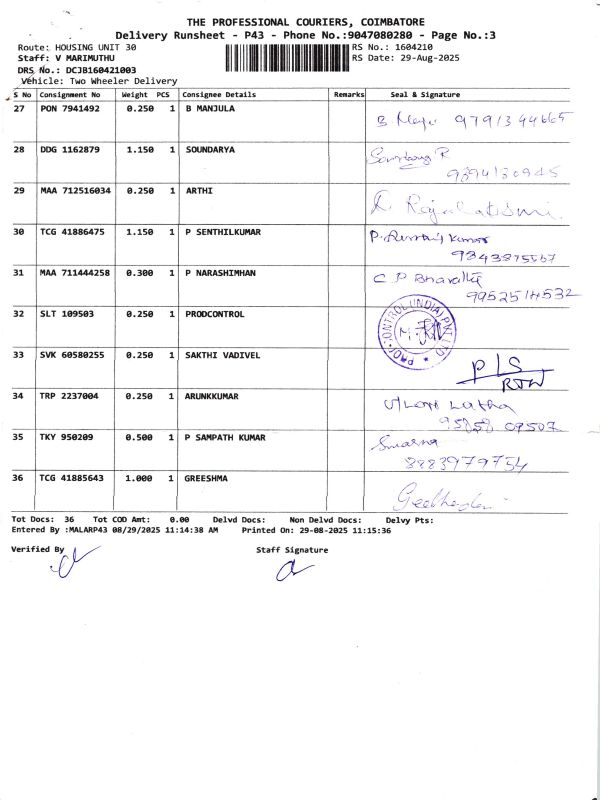 THE PROFESSIONAL COURIERS, COIMBATORE
Delivery Runsheet - P43 - Phone No.:9047080280 - Page No.:3
Route: HOUSING UNIT 30 RS No.: 1604210
Staff: V MARIMUTHU RS Date: 29-Aug-2025
DRS No.: DCJB160421003
Vehicle: Two Wheeler Delivery
S No Consignment No Weight PCS Consignee Details Remarks Seal & Signature
27 PON 7941492 0.250 1 B MANJULA
28 DDG 1162879 1.150 1 SOUNDARYA
9894130945
29 MAA 712516034 0.250 1 ARTHI
30 TCG 41886475 1.150 1 P SENTHILKUMAR
31 MAA 711444258 0.300 1 P NARASHIMHAN
32 SLT 109503 0.250 1 PRODCONTROL
33 SVK 60580255 0.250 1 SAKTHI VADIVEL
P/S
34 TRP 2237004 0.250 1 ARUNKKUMAR
Latha
35 TKY 950209 0.500 1 P SAMPATH KUMAR
8883979754
36 TCG 41885643 1.000 1 GREESHMA
Tot Docs: 36 Tot COD Amt: 0.00 Delvd Docs: Non Delvd Docs: Delvy Pts:
Entered By :MALARP43 08/29/2025 11:14:38 AM Printed On: 29-08-2025 11:15:36
Verified By Staff Signature